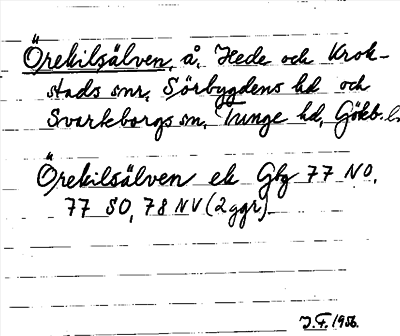 Örekilsälven, å, Hede och Krok-
stads snr, Sörbygdens hd och
Svarteborgs sn, Tunge hd, Götb. l.
Örekilsälven ek Gbg 77 NO,
77 SO, 78 NV (2 ggr)
J.F. 1956.